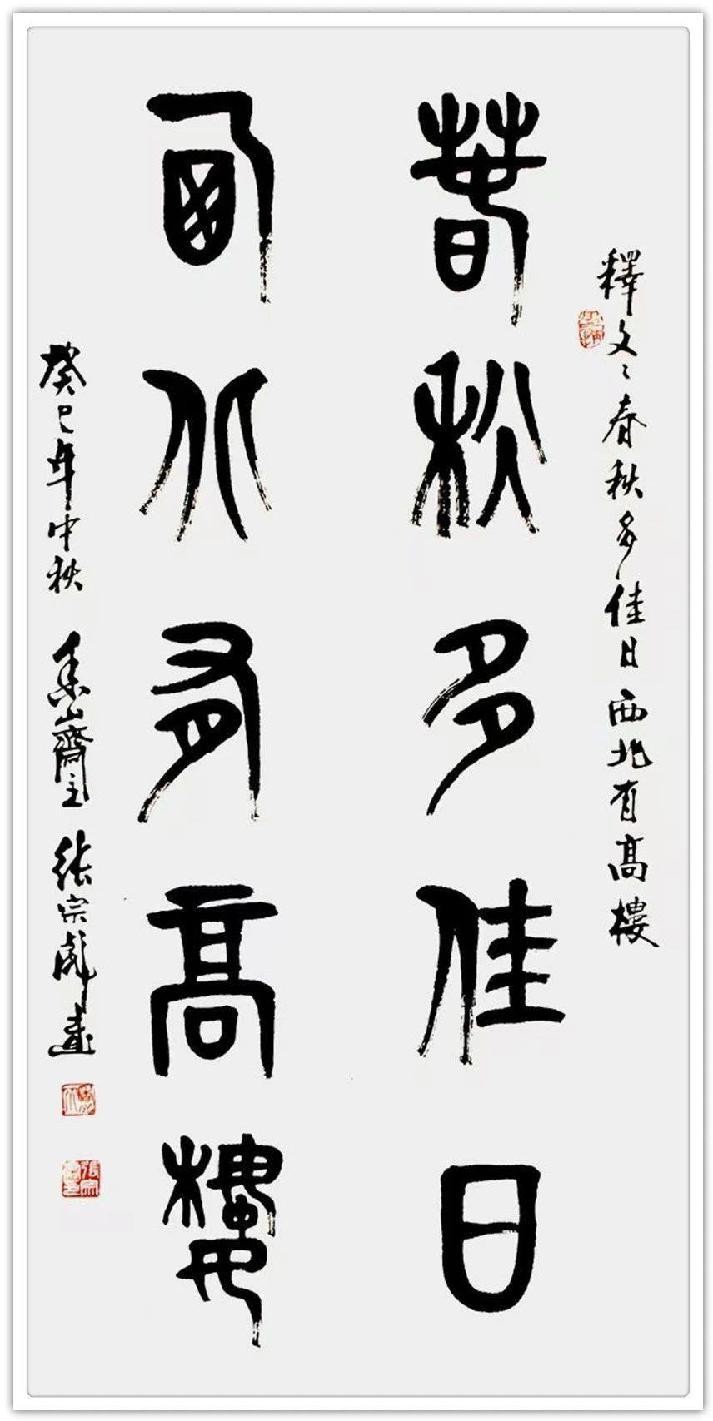 釋文：春秋多佳日西北有高樓
春秋多佳日
西北有高樓
癸巳年中秋 泰山齋主 張宗彪書